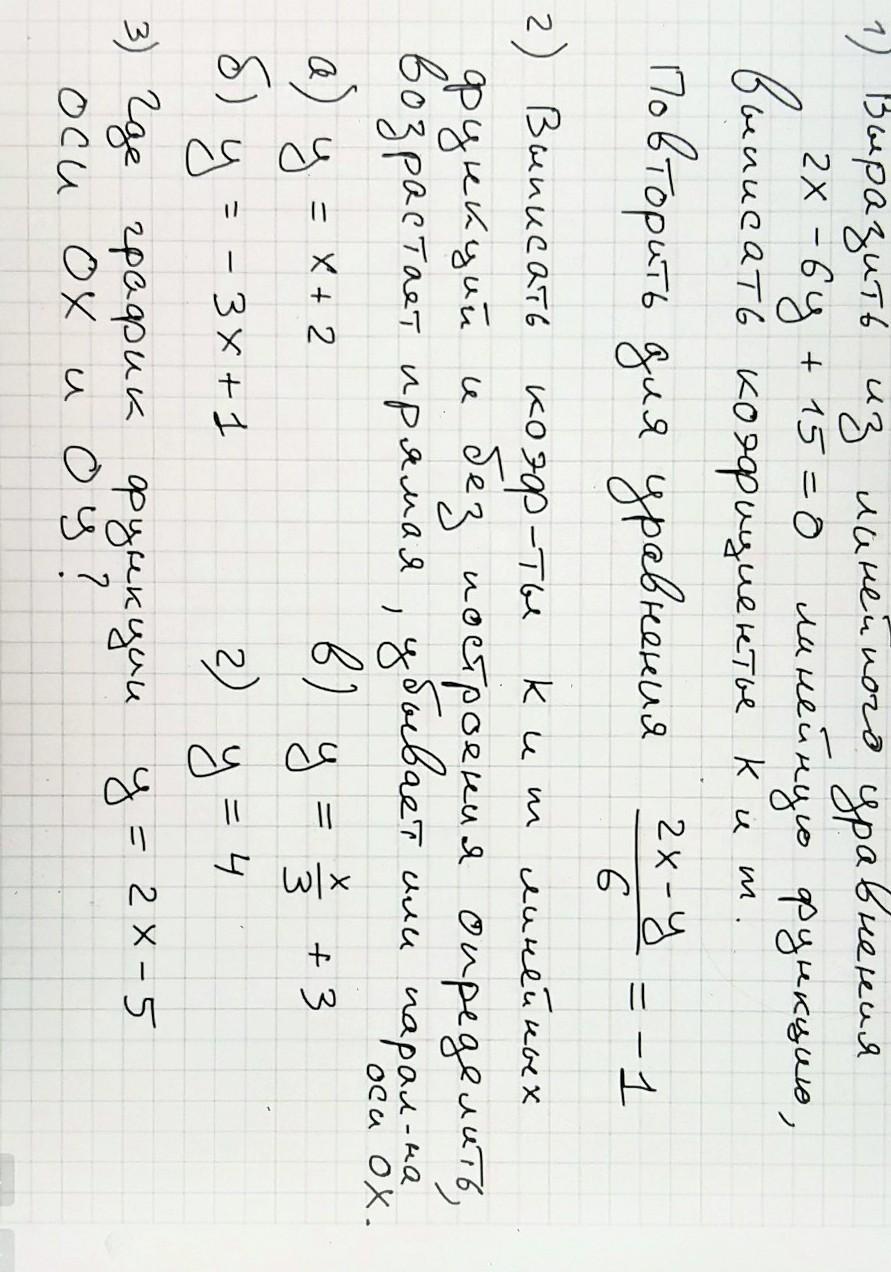 1) Выразить из линейного уравнения
2x - 6y + 15 = 0 линейную функцию,
выписать коэфициенты k и m.
Повторить для уравнения (2x - y)/6 = -1
2) Выписать коэф-ты k и m линейных
функций и без построения определить,
возрастает прямая, убывает или парал-на
оси OX.
а) y = x + 2 в) y = x/3 + 3
б) y = -3x + 1 г) y = 4
3) Где график функции y = 2x - 5
оси OX и OY?